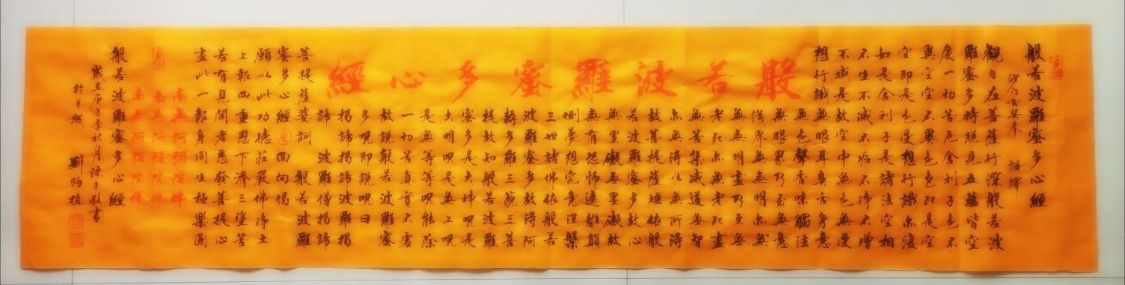 般若波羅蜜多心經
沙門玄奘奉 詔譯
觀自在菩薩行深般若波
羅蜜多時照見五蘊皆空
度一切苦厄舍利子色不
異空空不異色色即是空
空即是色受想行識亦復
如是舍利子是諸法空相
不生不滅不垢不淨不增
不減是故空中無色無受
想行識無眼耳鼻舌身意
般若波羅蜜多心經
無色聲香味觸法
無眼界乃至無意
識界無無明亦無
無明盡乃至無
老死亦無老死盡
無苦集滅道無智
亦無得以無所得
故菩提薩埵依般
若波羅蜜多故心
無罣礙無罣礙故
無有恐怖遠離顛
倒夢想究竟涅槃
三世諸佛依般若
波羅蜜多故得阿
耨多羅三藐三菩
提故知般若波羅
蜜多是大神咒是
大明咒是無上咒
是無等等咒能除
一切苦真實不虛
故說般若波羅蜜
多咒即說咒曰
揭諦揭諦波羅揭
諦 波羅僧揭諦
菩提薩婆訶 般若波羅
蜜多心經 回向偈
願以此功德莊嚴佛淨土
上報四重恩下濟三塗苦
若有見聞者悉發菩提心
盡此一報身同生極樂國
南無阿彌陀佛
南無阿彌陀佛
南無阿彌陀佛
般若波羅蜜多心經